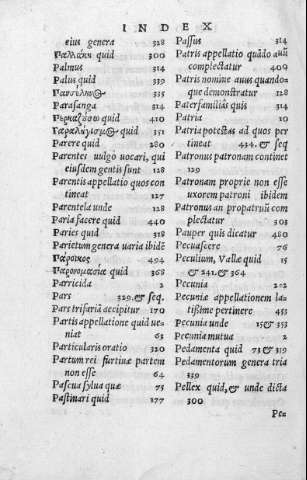 INDEX
eius genera 328
quid 300
Palmus 314
Palus quid 339
335
Parasanga 314
quid 410
quid 351
Parere quid 280
Parentes uulgo uocari, qui
eiusdem gentis sunt 128
Parentis appellatio quos con
tineat 127
Parentela unde 128
Paria facere quid 440
Paries quid 318
Parietum genera uaria ibidē
Πάροινος 494
Παρονομασία quid 368
Parricida 2
Pars 329. & seq.
Pars trifariā accipitur 170
Partis appellatione quid ue/
niat 63
Particularis oratio 320
Partum rei furtiuæ partem
non esse 64
Pascua sylua quæ 75
Pastinari quid 177
Passus 314
Patris appellatio quādo auū
complectatur 400
Patris nomine auus quando-
que demonstratur 128
Paterfamiliâs quis 314
Patria 10
Patria potestas ad quos per
tineat 434. & seq
Patronus patronam continet
129
Patronam proprie non esse
uxorem patroni ibidem
Patronus an propatruū com
plectatur 303
Pauper quis dicatur 480
Pecuascere 76
Peculium, Vallæ quid 15
& 241. & 364
Pecunia 212
Pecuniæ appellationem la-
tissime pertinere 453
Pecunia unde 15 & 353
Pecunia mutua 2
Pedamenta quid 73 & 319
Pedamentorum genera tria
339
Pellex quid, & unde dicta
300